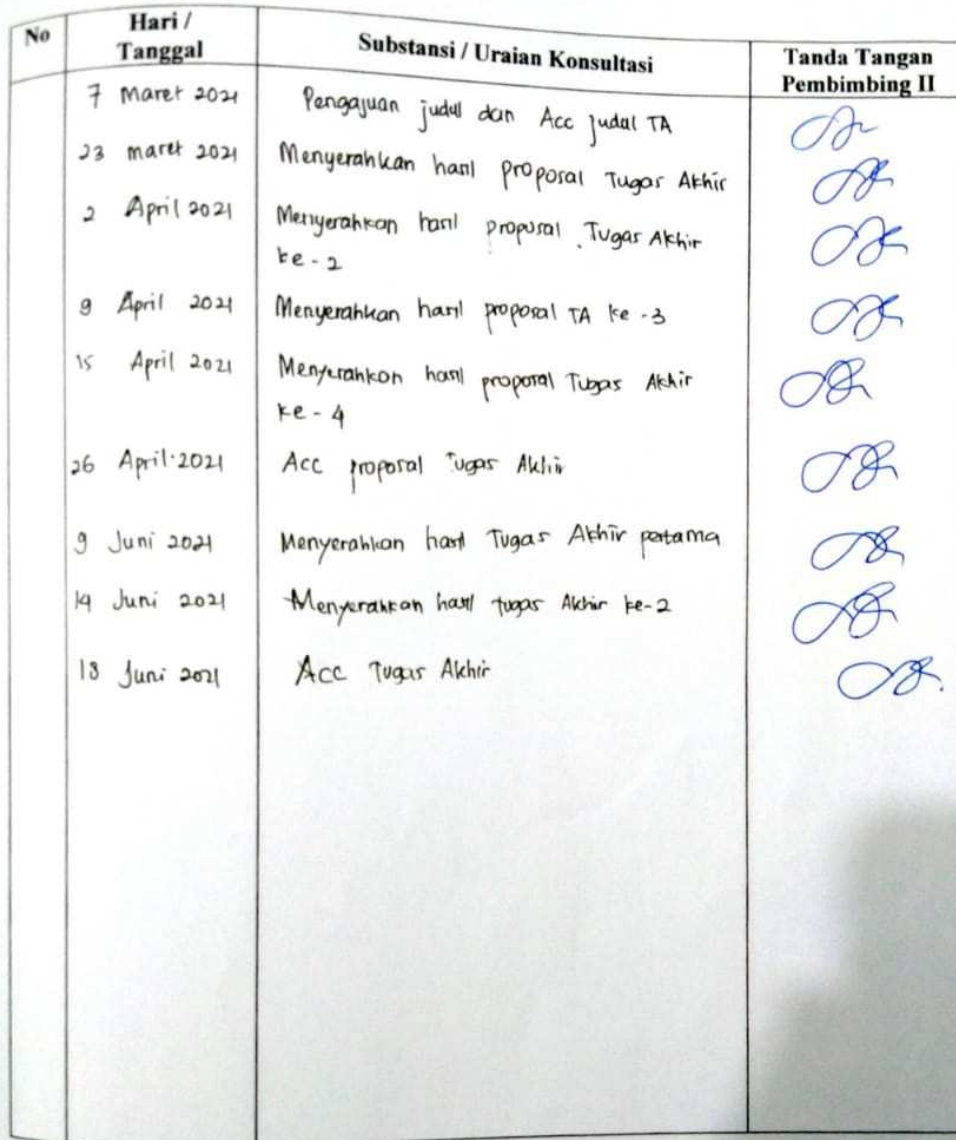 No
Hari /
Tanggal
Substansi / Uraian Konsultasi
Tanda Tangan
Pembimbing II
7 Maret 2021 Pengajuan judul dan Acc judul TA
23 maret 2021 Menyerahkan hasil proposal Tugas Akhir
2 April 2021 Menyerahkan hasil proposal Tugas Akhir
ke - 2
9 April 2021 Menyerahkan hasil proposal TA ke - 3
15 April 2021 Menyerahkan hasil proposal Tugas Akhir
ke - 4
26 April 2021 Acc proposal Tugas Akhir
9 Juni 2021 Menyerahkan hasil Tugas Akhir pertama
14 Juni 2021 Menyerahkan hasil tugas Akhir ke-2
18 Juni 2021 Acc Tugas Akhir